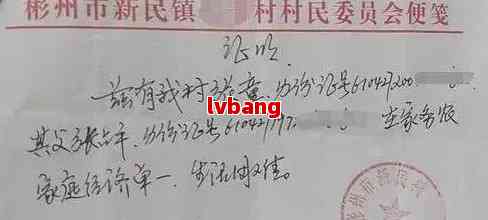 彬州市新民镇 村村民委员会便笺
证明
兹有我村张童,身份证号610427200
lvbang
其父张占年,身份证号61042719 在家务农
家庭经济单一,生活困难。
彬州市新民